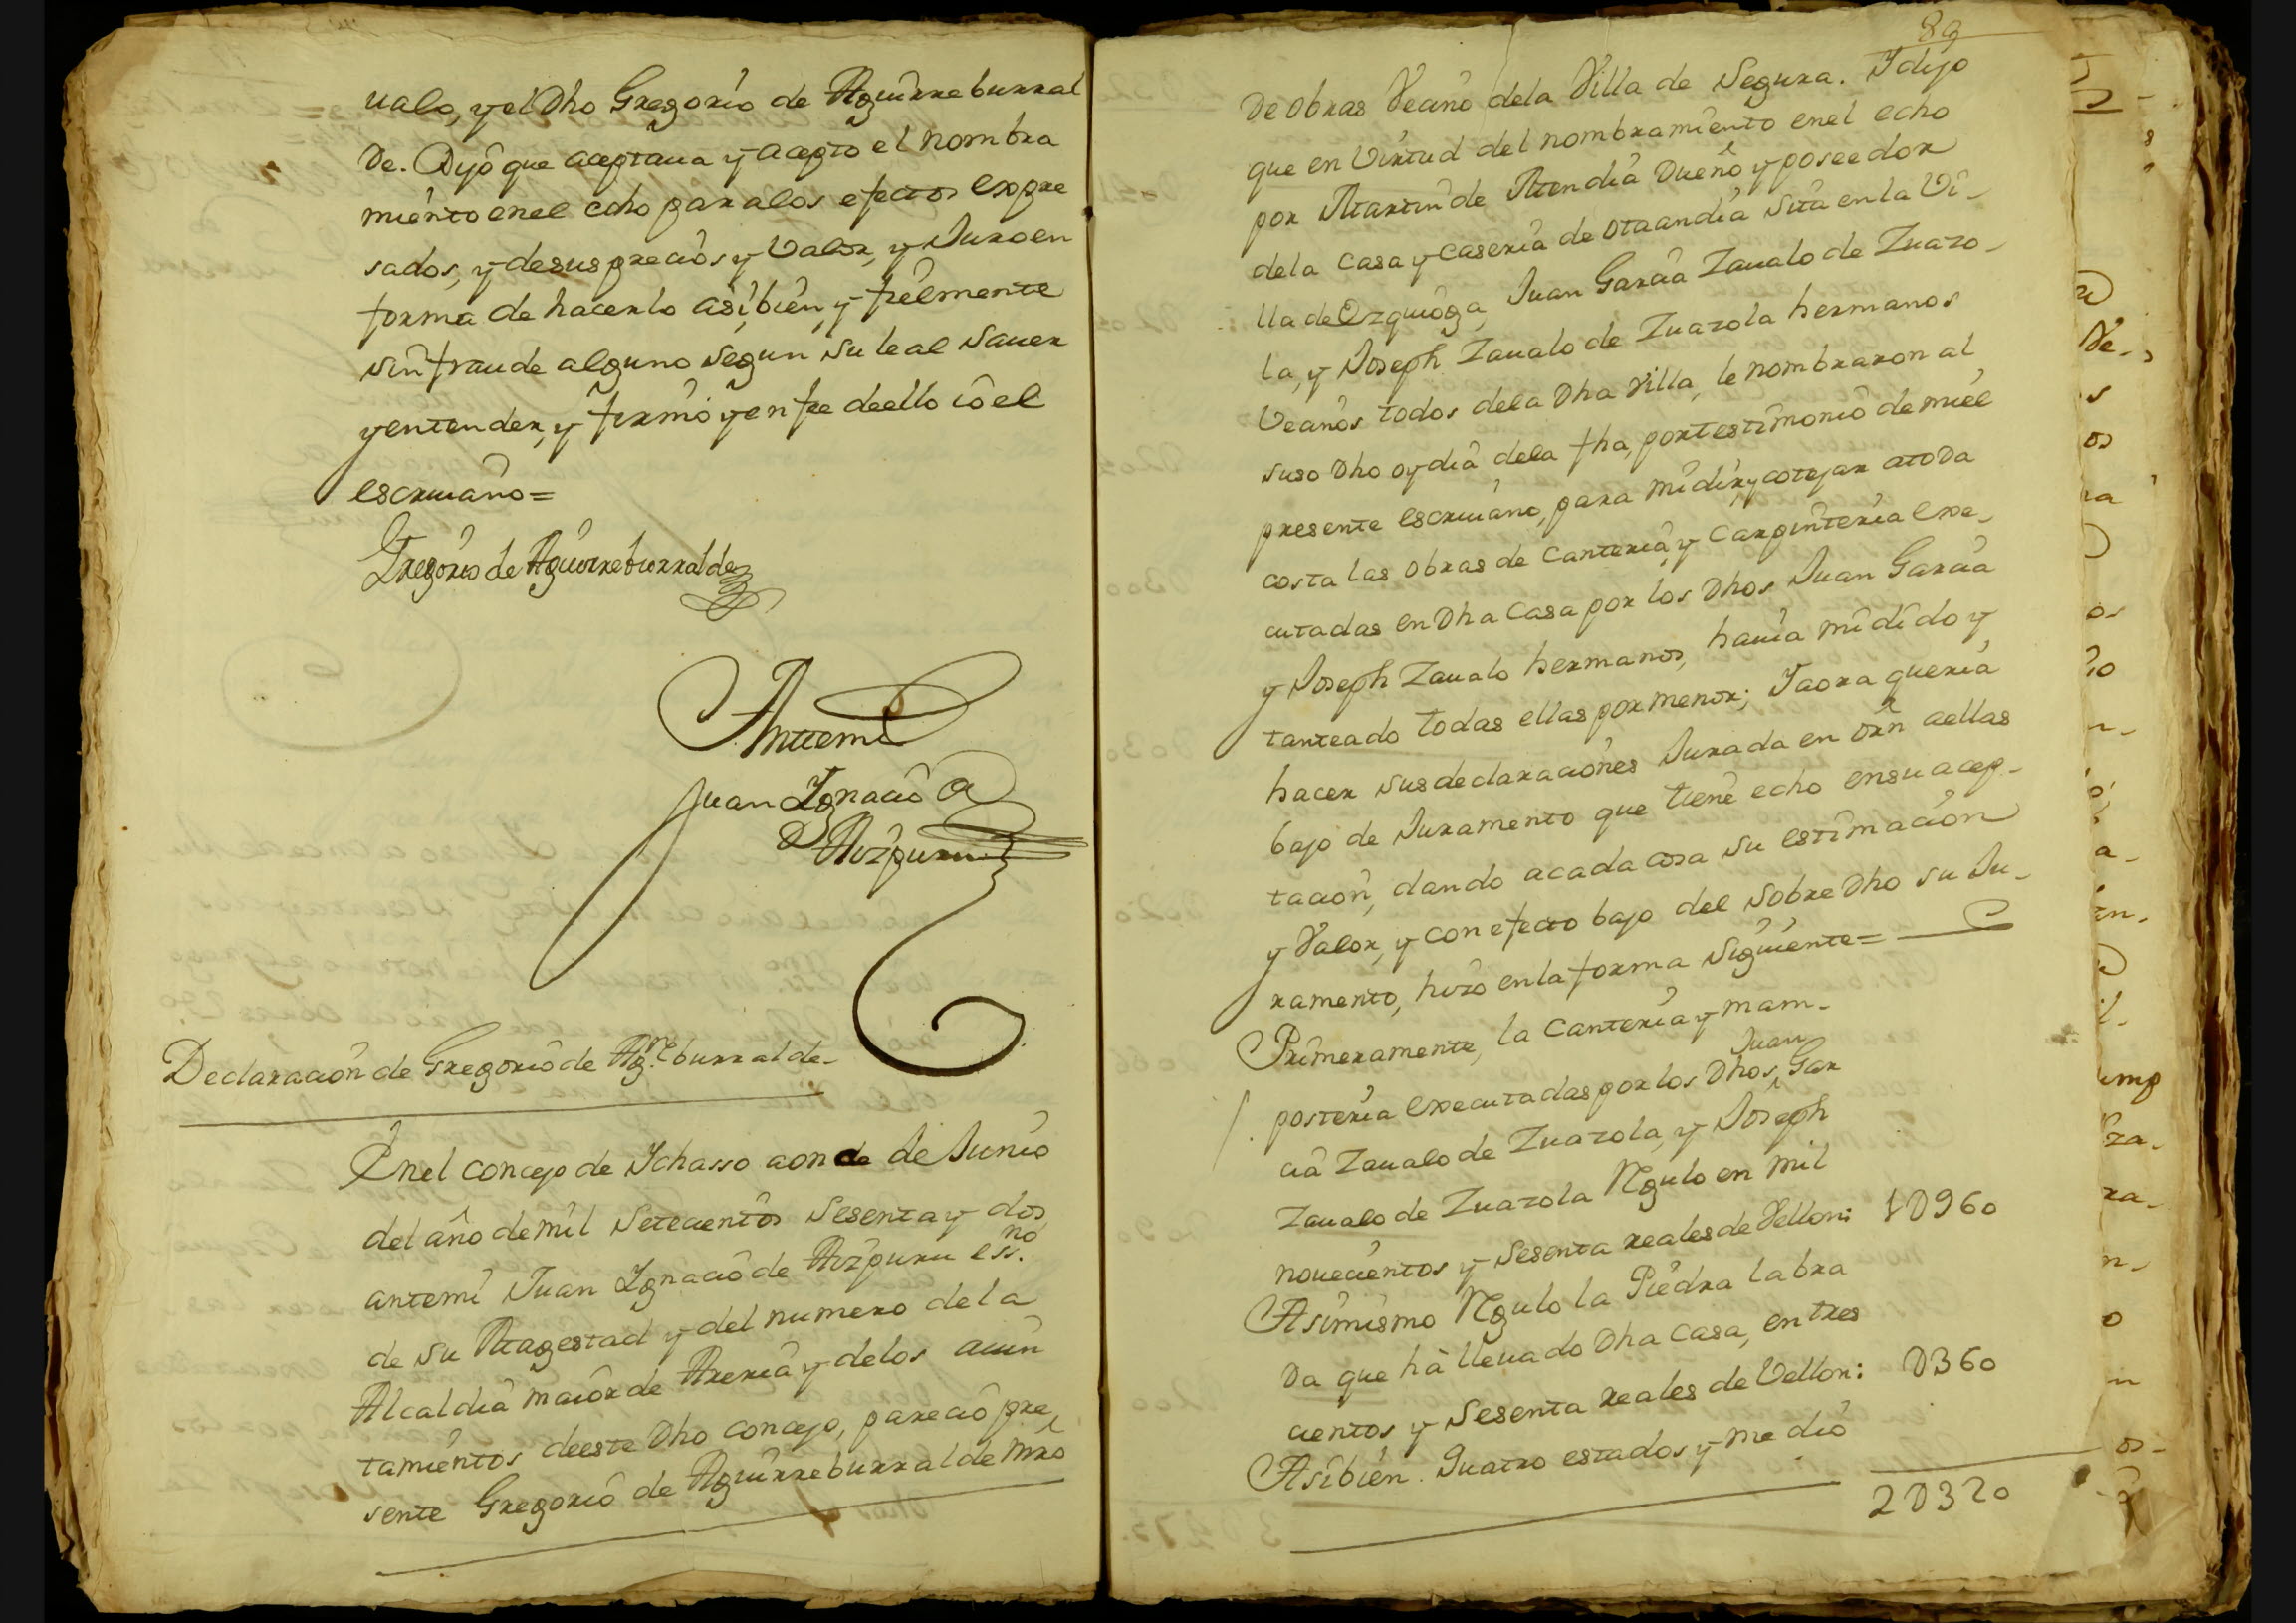 ualo, y el Dho Gregorio de Aguirreburral
de. Dijo que aceptaua y acepto el nombra
miento enel echo para los efectos expre
sados, y de sus precios y Valor, y Juro en
forma de hacerlo asi, bien, y fielmente
sin fraude alguno segun su leal saver
y entender, y firmò y en fee de ello io el
escriuano=
Gregorio de Aguirreburralde
Antemi
Juan Ignacio de
Aizpuru
Declaracion de Gregorio de Agre.burralde-
Enel concejo de Ichasso a once de Junio
del año de mil setecientos sesenta y dos
antemi Juan Ignacio de Aizpuru essno.
de su Magestad y del numero de la
Alcaldia maior de Areria y de los aiun
tamientos de este Dho concejo, parecio pre
sente Gregorio de Aguirreburralde mro
89
de obras Vecino dela Villa de Segura. I dijo
que en Virtud del nombramiento enel echo
por Martin de Mendia Dueño y poseedor
dela casa y caseria de otaandia sita en la Vi-
lla de Ezquioga, Juan Garcia Zaualo de Zuazo-
la, y Joseph Zaualo de Zuazola hermanos
Vecinos todos dela Dha Villa, le nombraron al
suso Dho oy dia dela fha, por testimonio de mi el
presente escriuano, para midir, y cotejar a toda
costa las obras de Canteria, y Carpinteria exe-
cutadas en Dha Casa por los Dhos Juan Garcia
y Joseph Zaualo hermanos, hauia midido y
tanteado todas ellas por menor; I aora queria
hacer sus declaraciones Jurada en orn aellas
bajo de Juramento que tiene echo en su acep-
tacion, dando acada cosa su estimacion
y Valor, y con efecto bajo del sobre Dho su Ju-
ramento, hizo en la forma siguiente=
Primeramente, la Canteria y mam-
posteria executadas por los Dhos Juan Gar
cia Zaualo de Zuazola, y Joseph
Zaualo de Zuazola Regulo en mil
nouecientos y sesenta reales de Vellon: 1D960
Asimismo Regulo la Piedra labra
da que hà lleuado Dha Casa, en tres
cientos y sesenta reales de Vellon: D360
Asibien. Quatro estados y medio
2D320